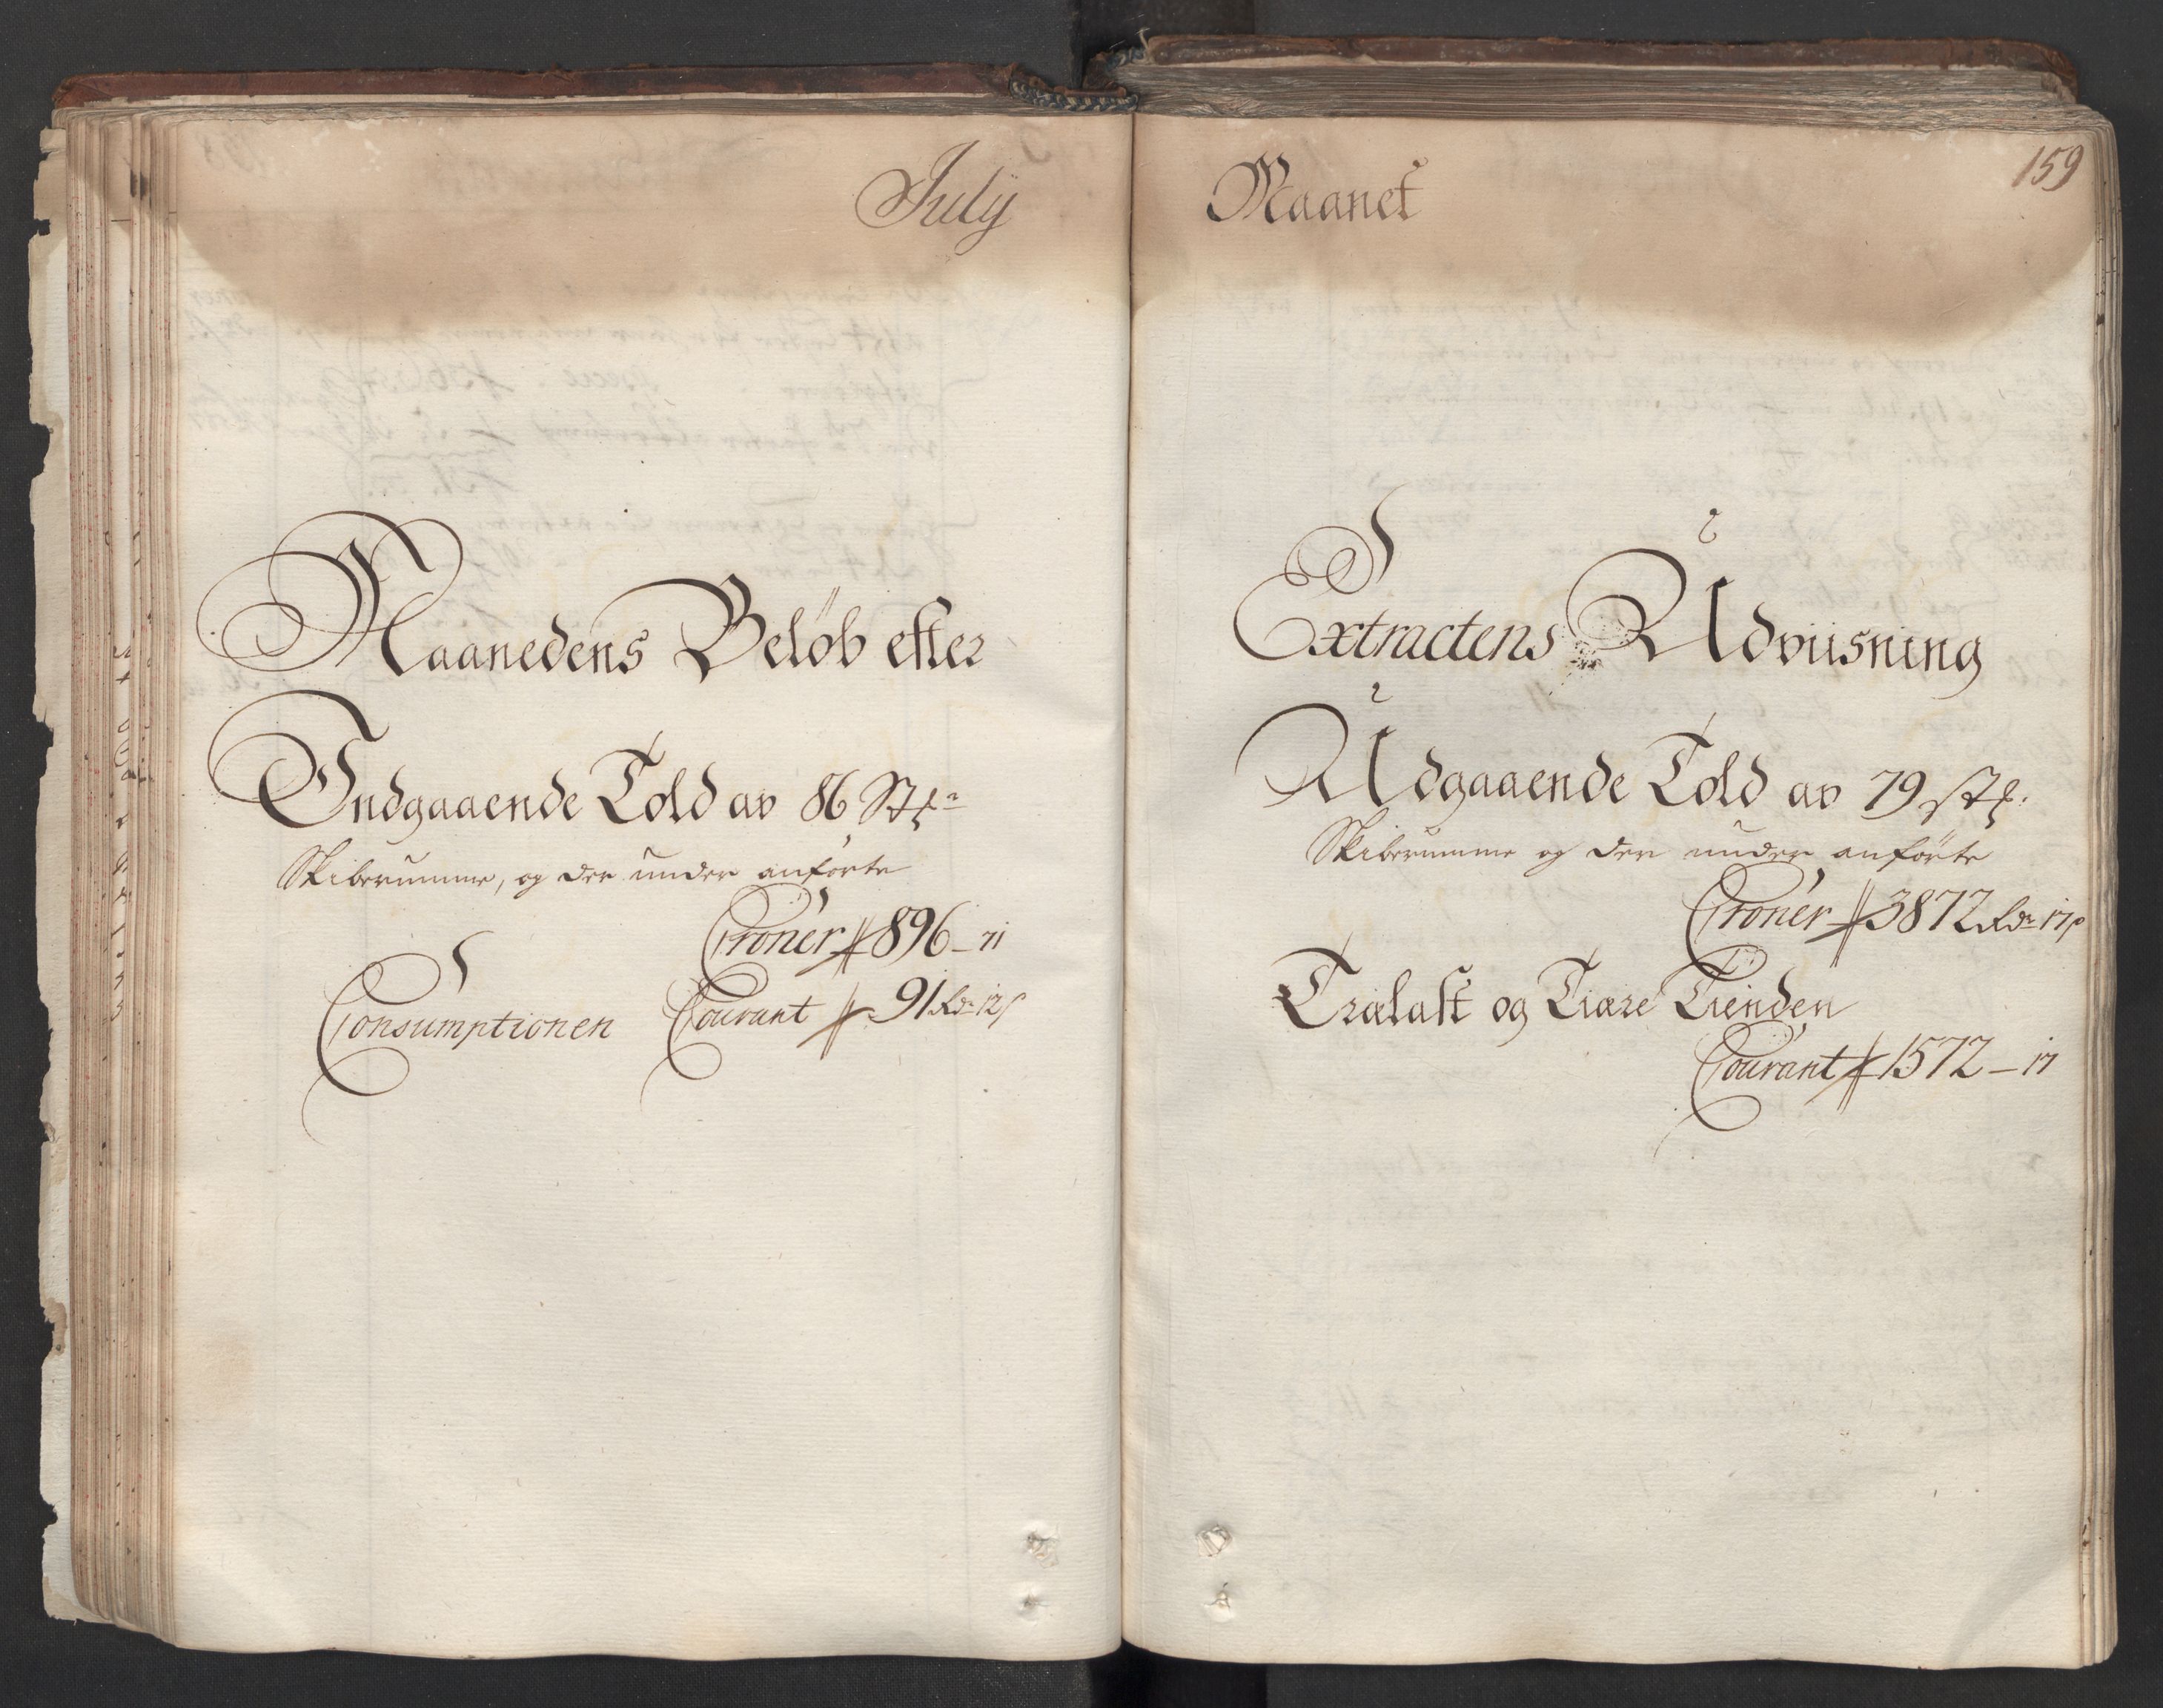 July
Maanedens Beløb efter
Indgaaende Told av 86 Stk
Skiberumme, og der under anførte
Croner 896 - 71
Consumptionen Courant 91 Rdr 12 s
Maanet
159
Extractens Udviisning
Udgaaende Told av 79 stk.
Skiberumme og der under anførte
Croner 3872 Rdr 17 s
Trælast og Tiære Tienden
Courant 1572 - 17